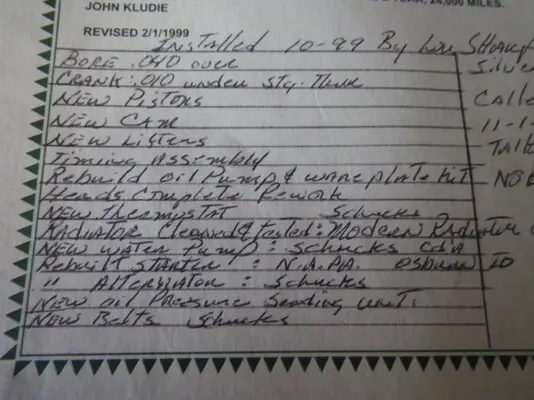 YEAR, 24,000 MILES.
JOHN KLUDIE
REVISED 2/1/1999
Installed 10-99 By Lou
BORE .040 over
CRANK: .010 under Std.
NEW Pistons
NEW CAM
NEW Lifters
Timing Assembly
Rebuild oil Pump & ware plate kit
Heads Complete Rework
NEW Thermostat Schucks
RADIATOR Cleaned & tested: Modern Radiator
NEW water Pump: Schucks CdA
Rebuilt STARTER : N.A.PA. Osburn ID
" Alternator : Schucks
NEW oil Pressure Sending unit.
NEW Belts Schucks